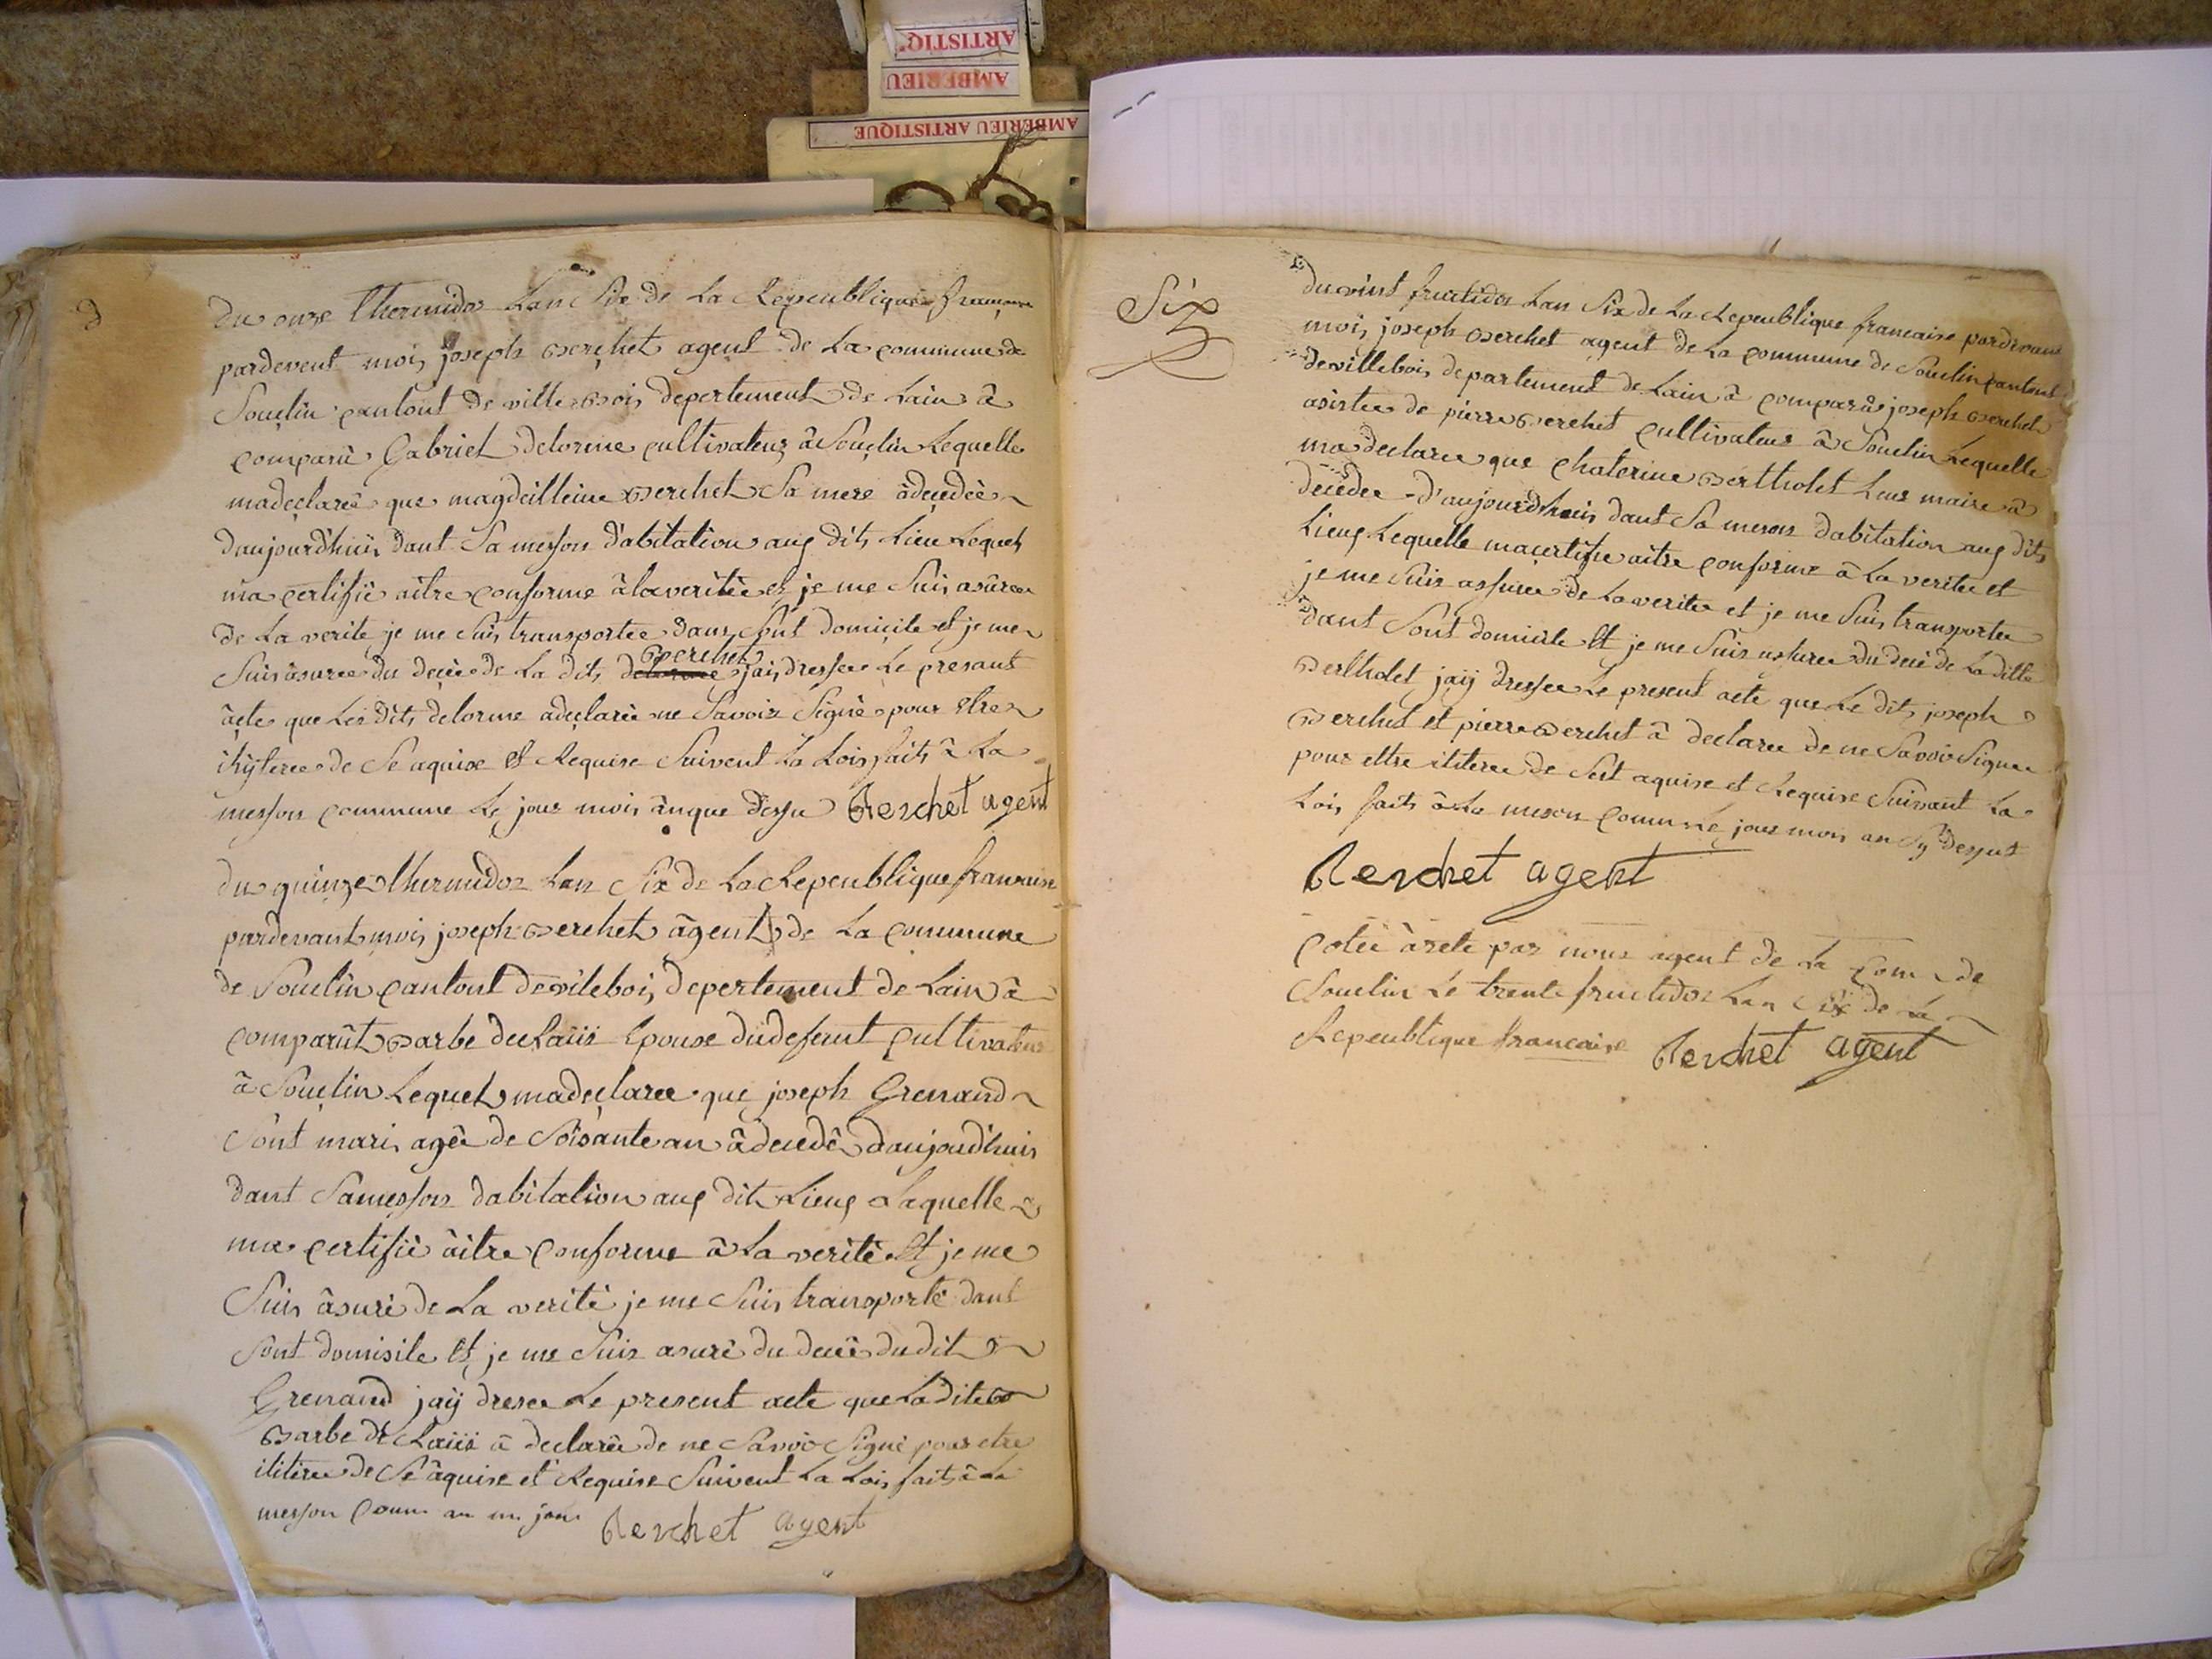 ARTISTIQ
AMBERIEU
AMBERIEU ARTISTIQUE
du onze thermidor Lan Six de La Repeublique francaise
pardevent mois joseph Berchet agent de La commune de
Souclin cantont de ville Bois depertement de Lain â
comparû Gabriel delorme cultivateur â Souclin Lequelle
madeclareê que magdeilleine Berchet Sa mere âdecedèe
daujourdhuis dant Sa messon dabitation aus dits Lieu Lequel
ma certifiè aitre conforme â la veritèe et je me Suis asûree
de La verite je me Suis transportee dans Sont domicile et je me
Suis âsuree du decèe de La dits Berchet jais dressee Le presant
âcte que Les dits delorme adeclarèe ne Savoir Signè pour etre
ihyteree de Se aquise et Requise Suivent La Lois faits â La
messon commune Le jour mois ânque dessu Berchet agent
du quinze thermidor Lan Six de La Repeublique francaise
pardevant mois joseph Berchet âgent de La commune
de Souclin cantont de vilebois depertement de Lain â
comparût Barbe deLaiis Epouse dudefunt cultivateur
â Souclin Lequel madeclaree que joseph Grenand
Sont maris agêe de Soisante an âdecedê daujoudhuis
dant Samesson dabitation aus dit Lieus Laquelle
ma certifiè âitre conforme â La veritè Et je me
Suis âsurè de La veritè je me Suis transportè dant
Sont domisile Et je me Suis asurè du decèe du dit
Grenand jaij dresee Le present acte que La dite
Barbe de Laiis â declarèe de ne Savoir Signè pour etre
ititeree de Se âquise et Requise Suivent La Lois faits â La
messon comm an m jour Berchet agent
Six
du vint fructidor Lan Six de La Repeublique francaise pardevant
mois joseph Berchet agent de La commune de Souclin cantont
de villebois departement de Lain â comparû joseph Berchet
asistee de pierre Berchet cultivateur â Souclin Lequelle
ma declaree que Chaterine Bertholet Leur maire â
decèdee d'aujourdhuis dant Sa meson dabitation aus dits
Lieus Lequelle macertifie aitre conforme â La veritee et
je me Suis assuree de La veritee et je me Suis transportee
dant Sont domicile Et je me Suis assuree du decè de La ditte
Bertholet jaij dressee Le present acte que Le dits joseph
Berchet et pierre Berchet â declaree de ne Savoir Signee
pour ettre ititeree de Set aquise et Requise Suivant La
Lois faits â La meson comm Le jour mois an Sy dessus
Berchet agent
Cotèe ârete par nous agent de La Com de
Souclin Le trente fructidor Lan Six de La
Repeublique francaise Berchet agent